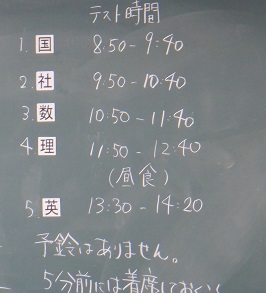 テスト時間
1. 国 8:50-9:40
2. 社 9:50-10:40
3. 数 10:50-11:40
4 理 11:50-12:40
(昼食)
5. 英 13:30-14:20
予鈴はありません。
5分前には着席しておくこ